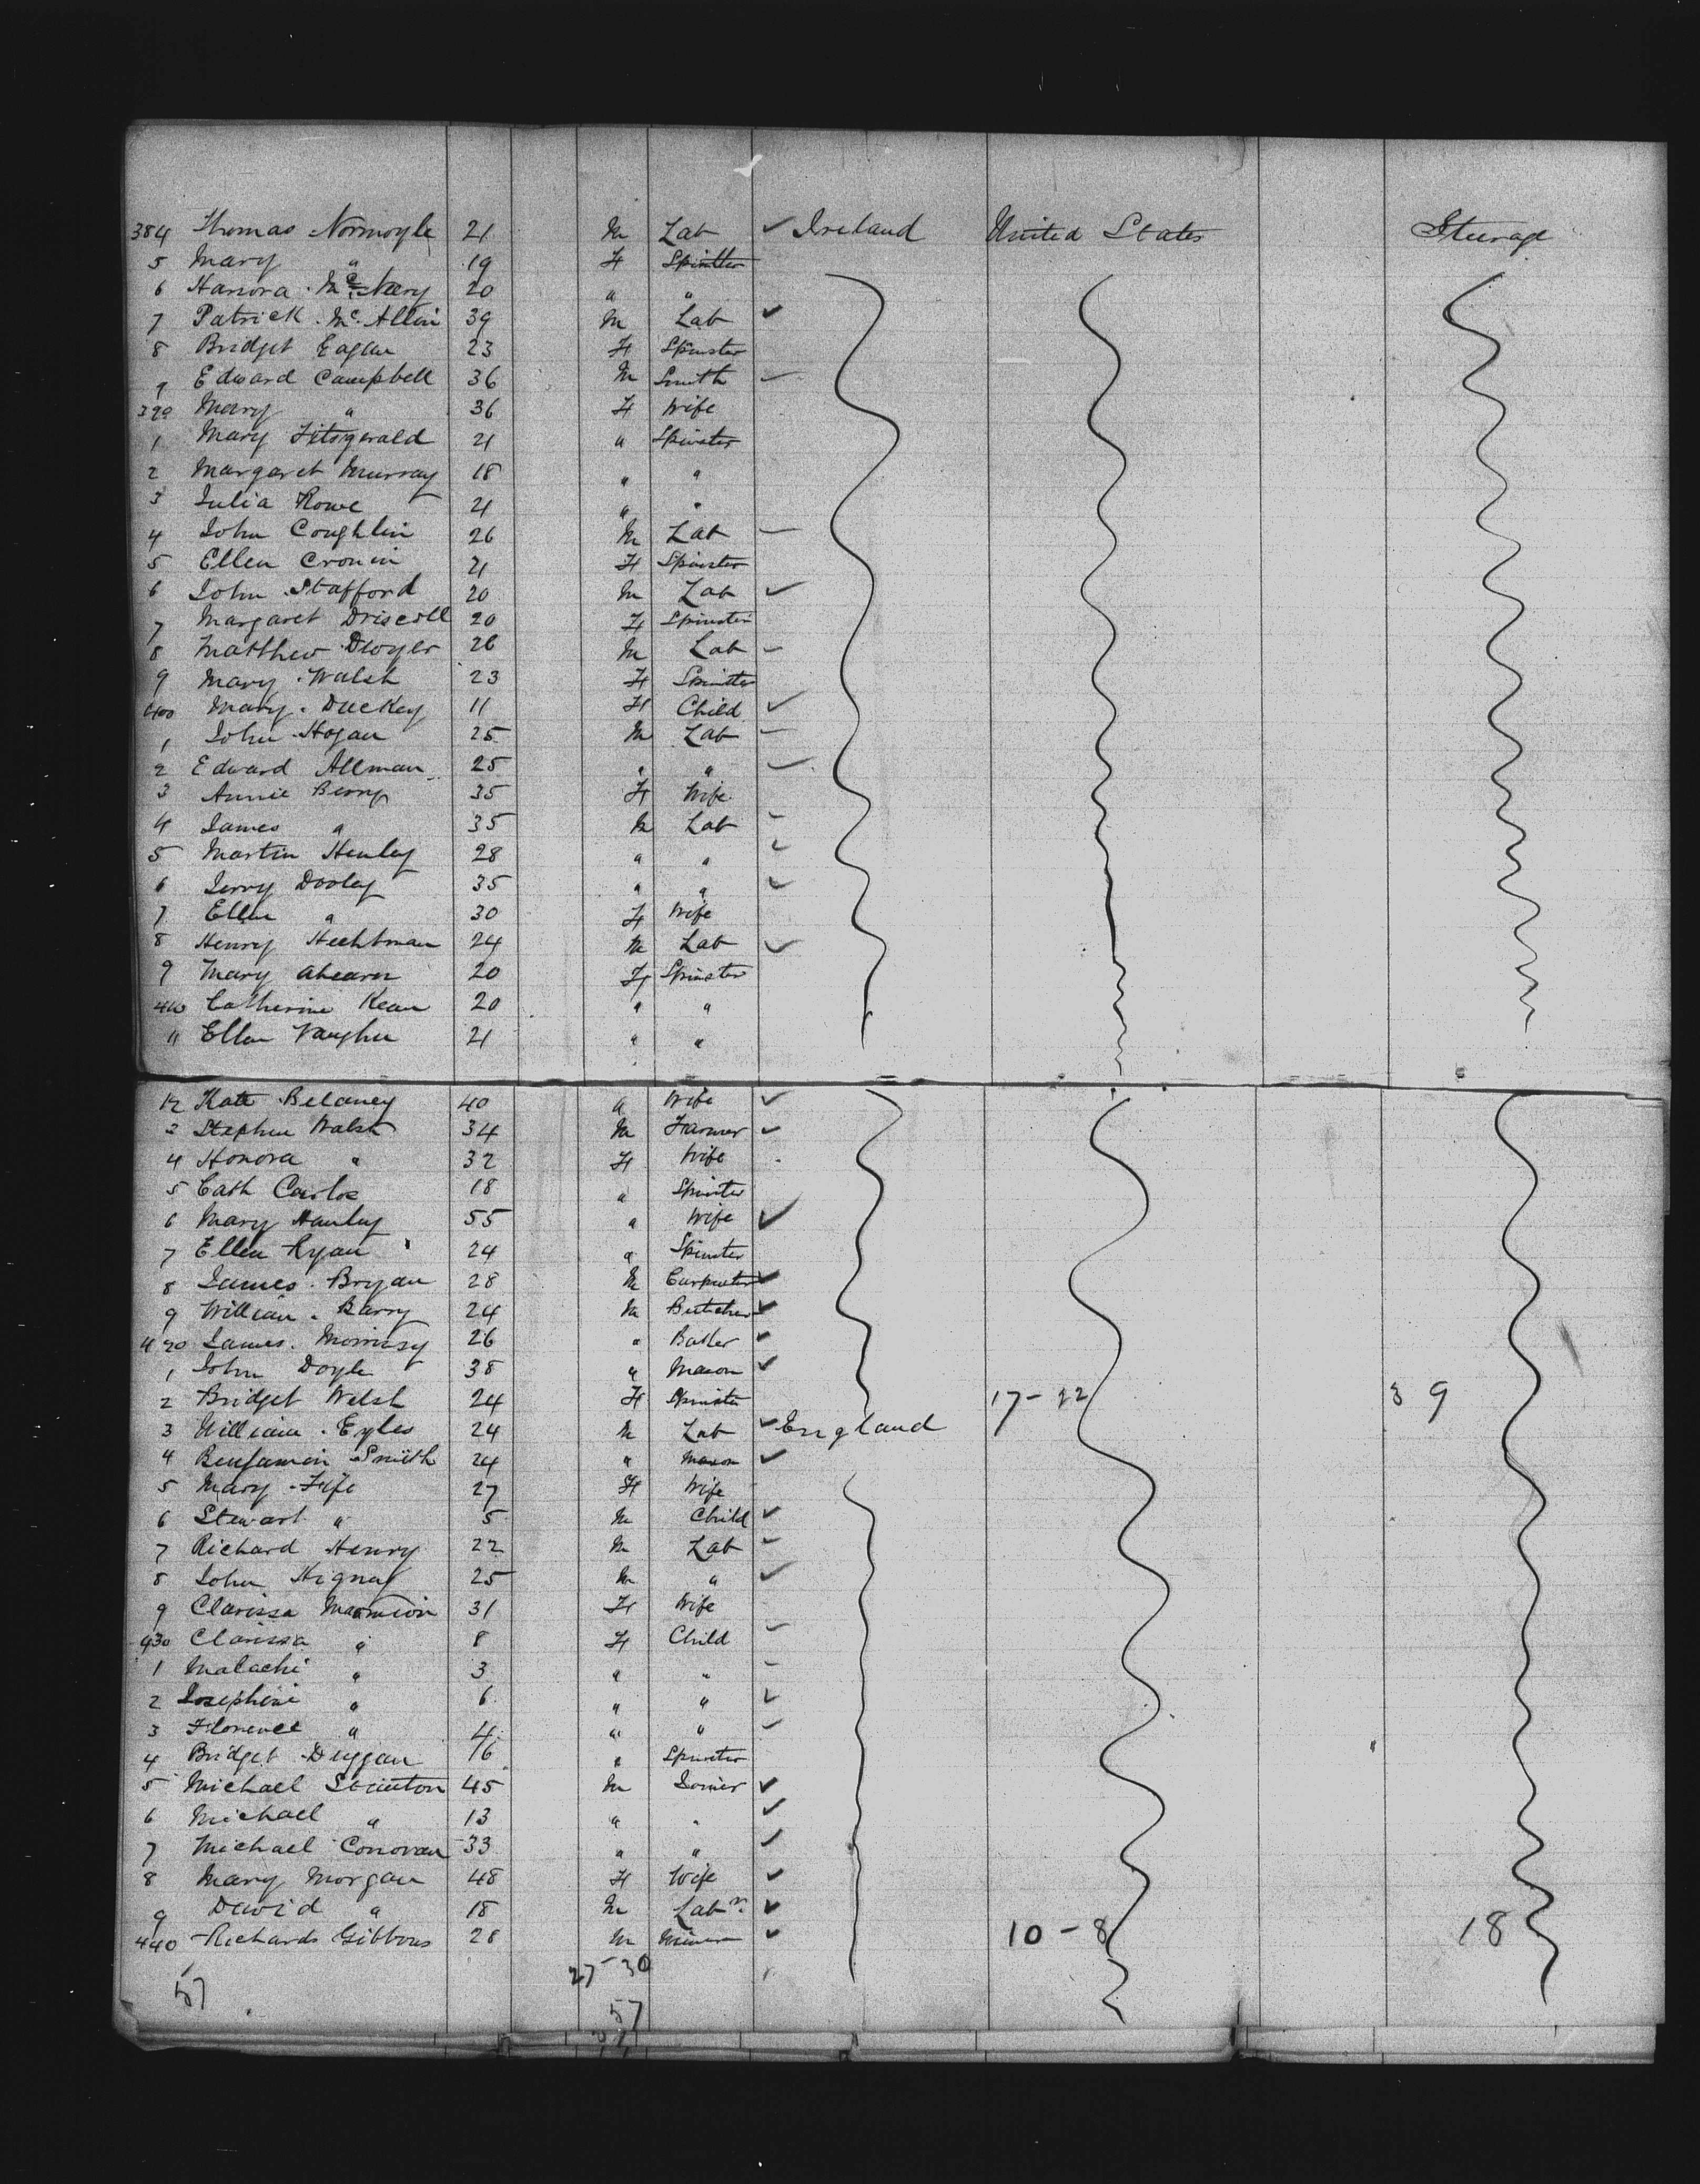 384 Thomas Normoyle 21 M Lab ✓ Ireland United States Steerage
5 Mary " 19 F Spinster
6 Hanora 20 " "
7 Patrick Mc Allin 39 M Lab ✓
8 Bridget Eagan 23 F Spinster
9 Edward Campbell 36 M Smith
390 Mary " 36 F Wife
1 Mary Fitzgerald 21 " Spinster
2 Margaret Murray 18 " "
3 Julia Rowe 21 " "
4 John Coughlin 26 M Lab
5 Ellen Cronin 21 F Spinster
6 John Stafford 20 M Lab ✓
7 Margaret Driscoll 20 F Spinster
8 Matthew Dwyer 26 M Lab
9 Mary Walsh 23 F Spinster
400 Mary Duckey 11 F Child ✓
1 John Hogan 25 M Lab
2 Edward Allman 25 " " ✓
3 Annie Berry 35 F Wife
4 James " 35 M Lab
5 Martin Henley 28 " " ✓
6 Jerry Dooley 35 " " ✓
7 Ellen " 30 F Wife
8 Henry Hechtman 24 M Lab ✓
9 Mary Ahearn 20 F Spinster
410 Catherine Kean 20 " "
11 Ellen Vaughn 21 " "
12 Kate Delaney 40 " Wife ✓
3 Stephen Walsh 34 M Farmer ✓
4 Honora " 32 F Wife
5 Cath Carlos 18 " Spinster
6 Mary Hanley 55 " Wife ✓
7 Ellen Ryan 24 " Spinster
8 James Bryan 28 M Carpenter ✓
9 William Barry 24 M Butcher ✓
420 James Morrissy 26 " Baker ✓
1 John Doyle 38 " Mason ✓
2 Bridget Welsh 24 F Spinster 17-22 39
3 William Eyles 24 M Lab ✓ England
4 Benjamin Smith 24 " Mason ✓
5 Mary Fife 27 F Wife
6 Stewart " 5 M Child ✓
7 Richard Henry 22 M Lab
8 John 25 M " ✓
9 Clarissa Marmion 31 F Wife
430 Clarissa " 8 F Child
1 Malachi " 3 " "
2 Josephine " 6 " " ✓
3 Florence " 4 " " ✓
4 Bridget Duggan 16 " Spinster
5 Michael Staunton 45 M Joiner ✓
6 Michael " 13 " " ✓
7 Michael Conovan 33 " " ✓
8 Mary Morgan 48 F Wife ✓
9 David " 18 M Labr ✓
440 Richards Gibbons 28 M Miner ✓ 10-8 18
27-30
57 57